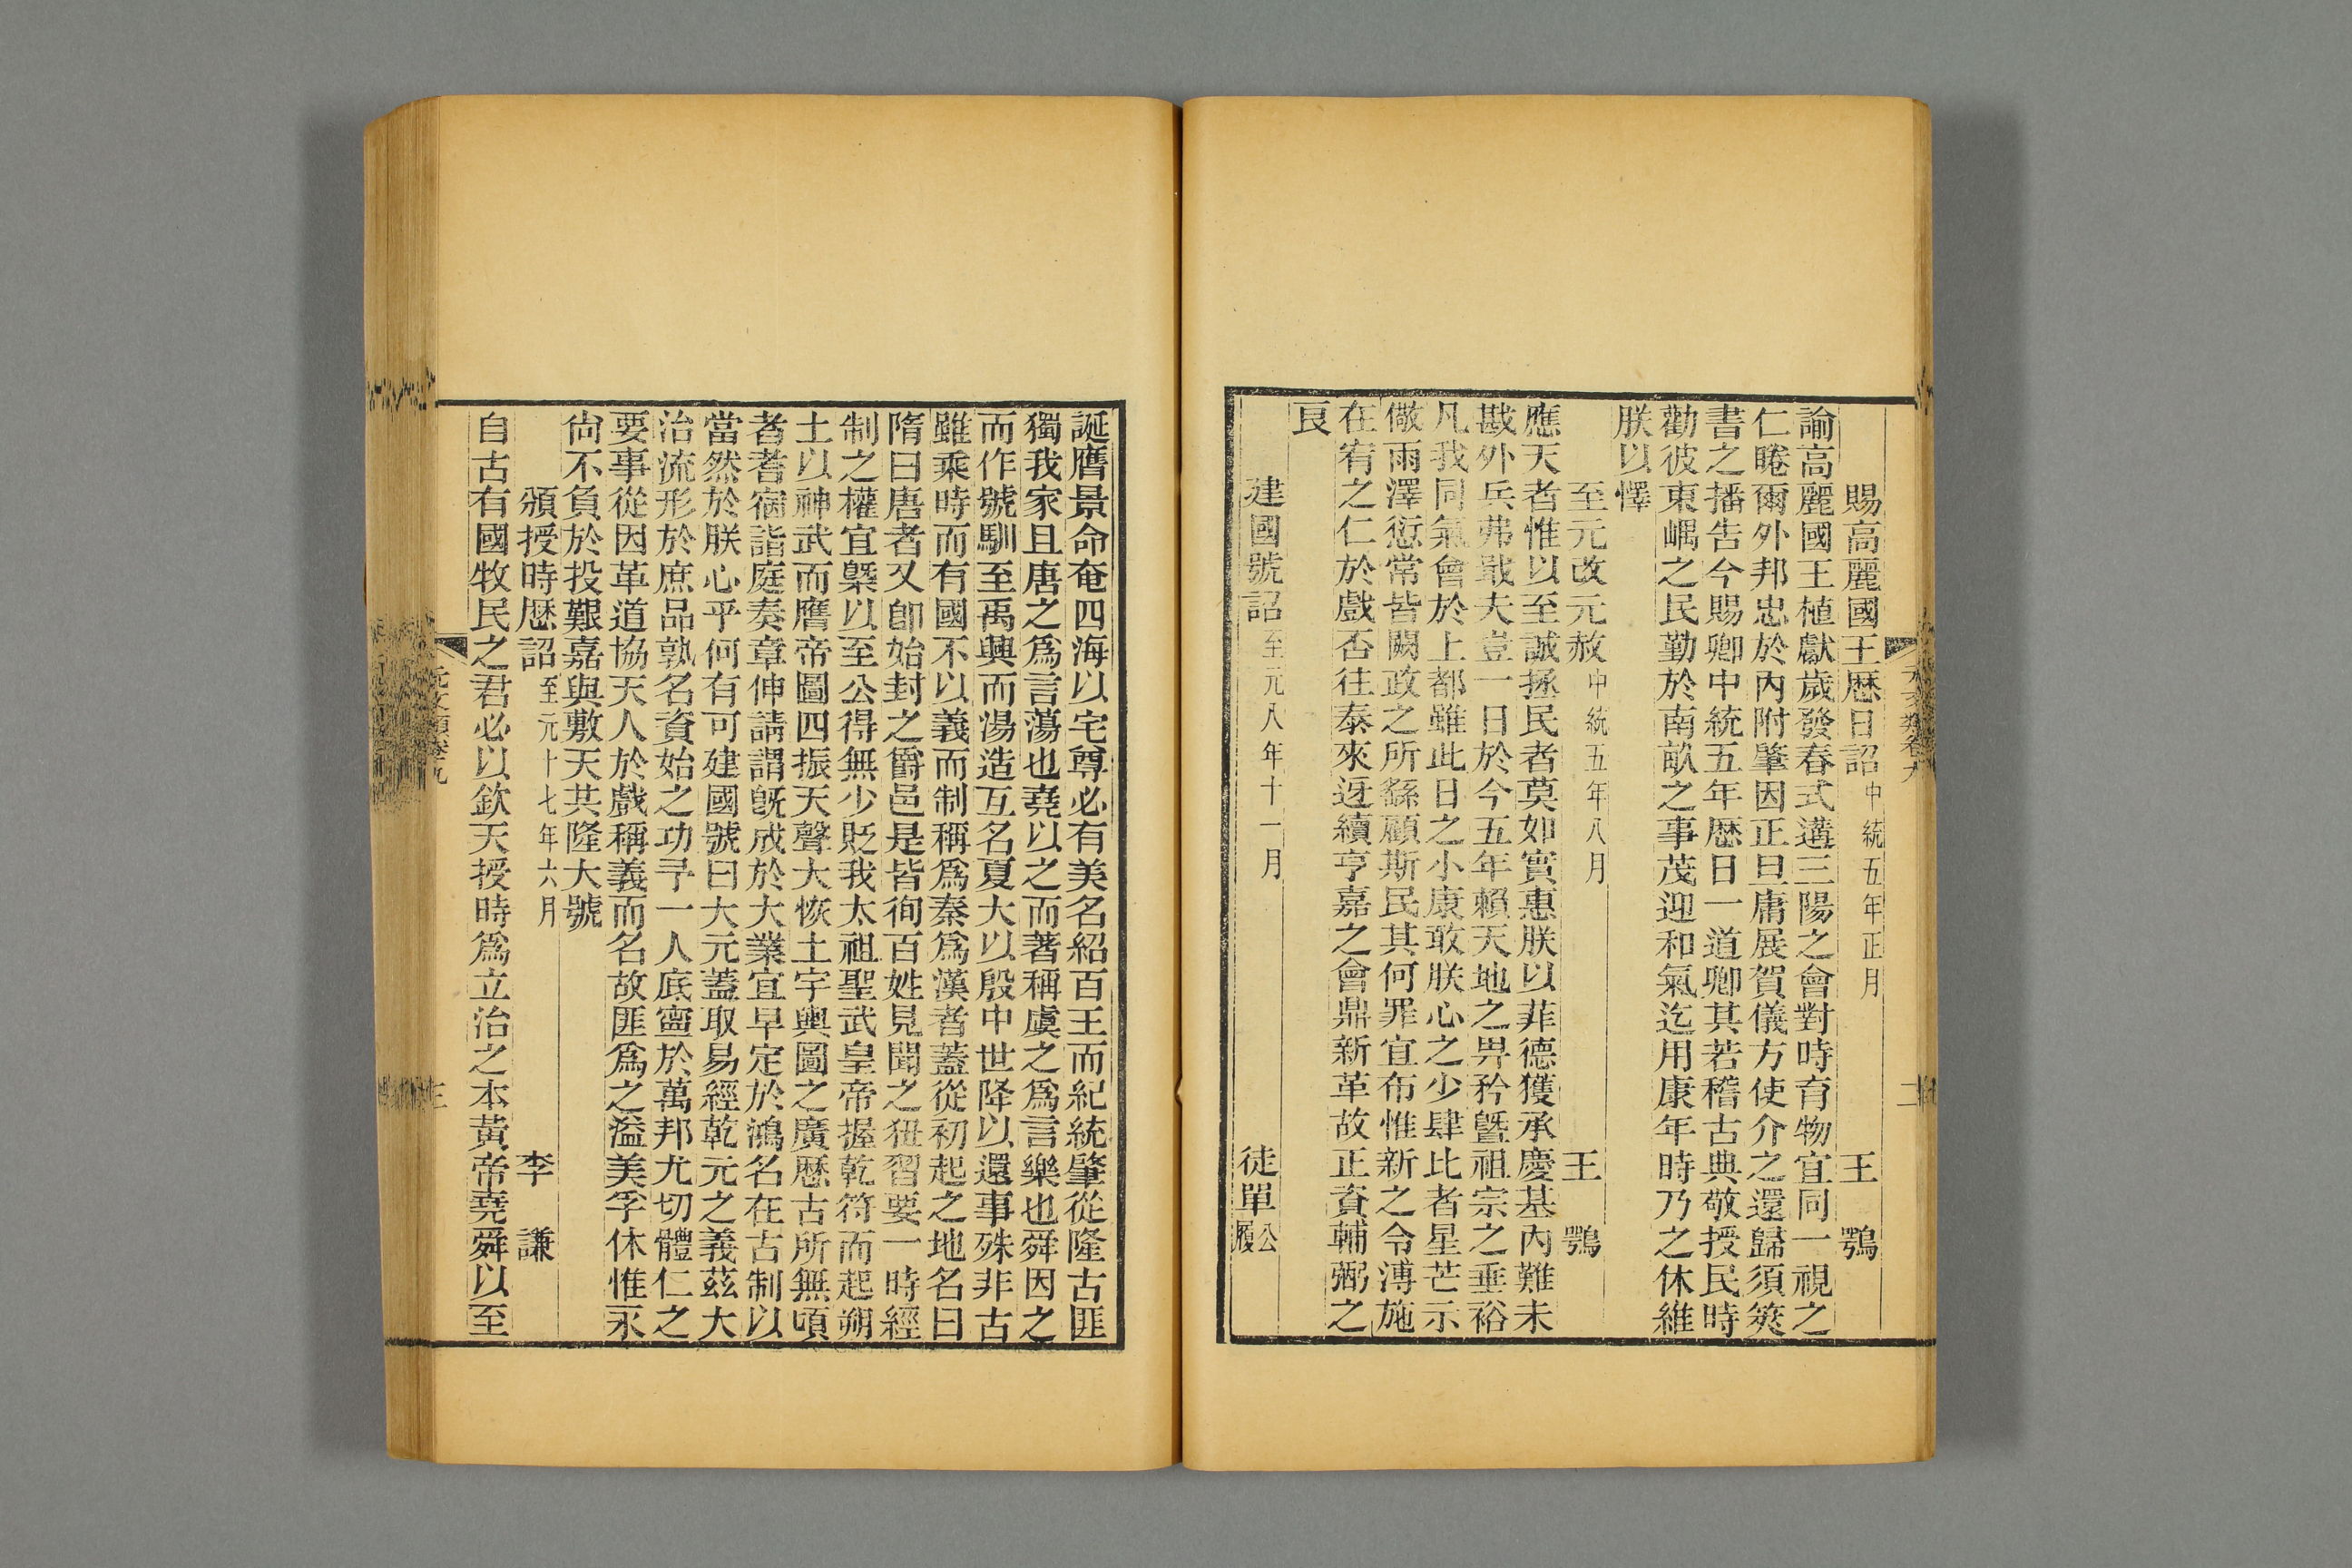 元文類卷九
二
賜高麗國王厯日詔中統五年正月 王鶚
諭高麗國王植獻歲發春式遘三陽之會對時育物宜同一視之
仁睠爾外邦忠於內附肇因正旦庸展賀儀方使介之還歸須筴
書之播告今賜卿中統五年厯日一道卿其若稽古典敬授民時
勸彼東嵎之民勤於南畝之事茂迎和氣迄用康年時乃之休維
朕以懌
至元改元赦中統五年八月 王鶚
應天者惟以至誠拯民者莫如實惠朕以菲德獲承慶基內難未
戡外兵弗戢夫豈一日於今五年賴天地之畀矜曁祖宗之垂裕
凡我同氣會於上都雖此日之小康敢朕心之少肆比者星芒示
儆雨澤愆常皆闕政之所繇顧斯民其何罪宜布惟新之令溥施
在宥之仁於戲否往泰來迓續亨嘉之會鼎新革故正資輔弼之
良
建國號詔至元八年十一月 徒單公履
誕膺景命奄四海以宅尊必有美名紹百王而紀統肇從隆古匪
獨我家且唐之爲言蕩也堯以之而著稱虞之爲言樂也舜因之
而作號馴至禹興而湯造互名夏大以殷中世降以還事殊非古
雖乘時而有國不以義而制稱爲秦爲漢者蓋從初起之地名曰
隋曰唐者又卽始封之爵邑是皆徇百姓見聞之狃習要一時經
制之權宜槩以至公得無少貶我太祖聖武皇帝握乾符而起朔
土以神武而膺帝圖四振天聲大恢土宇輿圖之廣厯古所無頃
者耆宿詣庭奏章伸請謂旣成於大業宜早定於鴻名在古制以
當然於朕心乎何有可建國號曰大元蓋取易經乾元之義茲大
治流形於庶品孰名資始之功予一人底寧於萬邦尤切體仁之
要事從因革道協天人於戲稱義而名故匪爲之溢美孚休惟永
尙不負於投艱嘉與敷天共隆大號
頒授時厯詔至元十七年六月 李謙
自古有國牧民之君必以欽天授時爲立治之本黃帝堯舜以至
元文類卷九
三